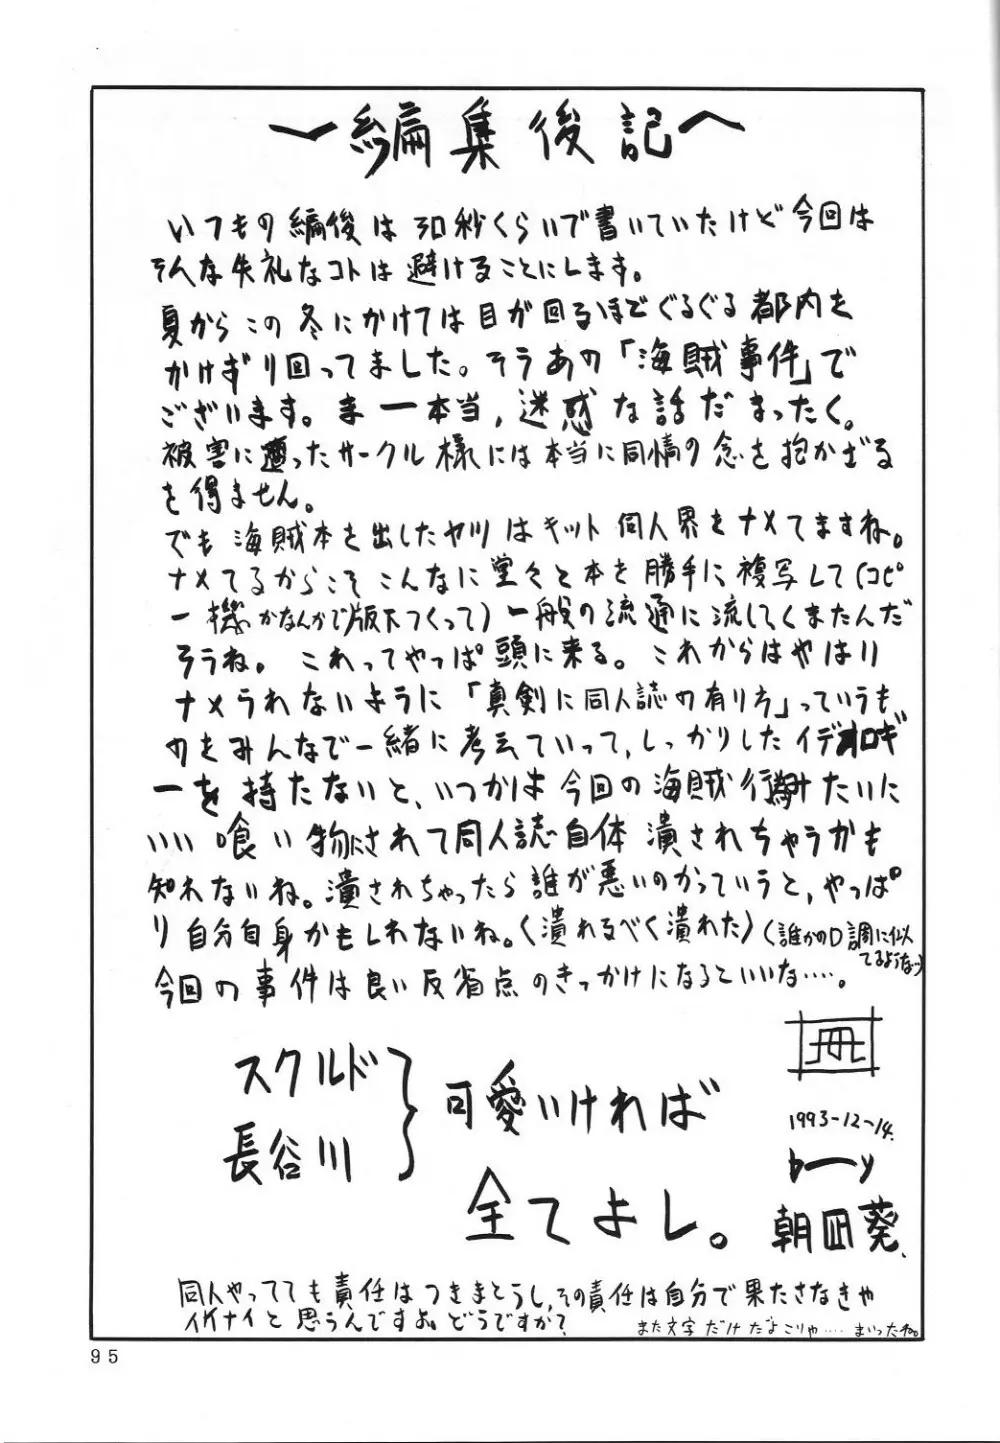 〜編集後記〜
いつもの編後は30秒くらいで書いていたけど今回は
そんな失礼なコトは避けることにします。
夏からこの冬にかけては目が回るほどぐるぐる都内を
かけずり回ってました。そうあの「海賊事件」で
ございます。まー本当,迷惑な話だまったく。
被害に遭ったサークル様には本当に同情の念を抱かざる
を得ません。
でも海賊本を出したヤツはキット同人界をナメてますね。
ナメてるからこそこんなに堂々と本を勝手に複写して(コピ
ー機かなんかで版下つくって)一般の流通に流してくまたんだ
そうね。これってやっぱ頭に来る。これからはやはり
ナメられないように「真剣に同人誌の有り方」っていうも
のをみんなで一緒に考えていって,しっかりしたイデオロギ
ーを持たないと、いつかは今回の海賊行為みたいに
いい喰い物にされて同人誌自体潰されちゃうかも
知れないね。潰されちゃったら誰が悪いのかっていうと,やっぱ
り自分自身かもしれないね。〈潰れるべく潰れた〉(誰かの口調に似
てるような)
今回の事件は良い反省点のきっかけになるといいな……。
スクルド
長谷川
可愛いければ
全てよし。
1993-12-14.
by
朝凪葵.
同人やってても責任はつきまとうし,その責任は自分で果たさなきゃ
イケナイと思うんですよ。どうですか?
また文字だけだよこりゃ……まいったね。
95